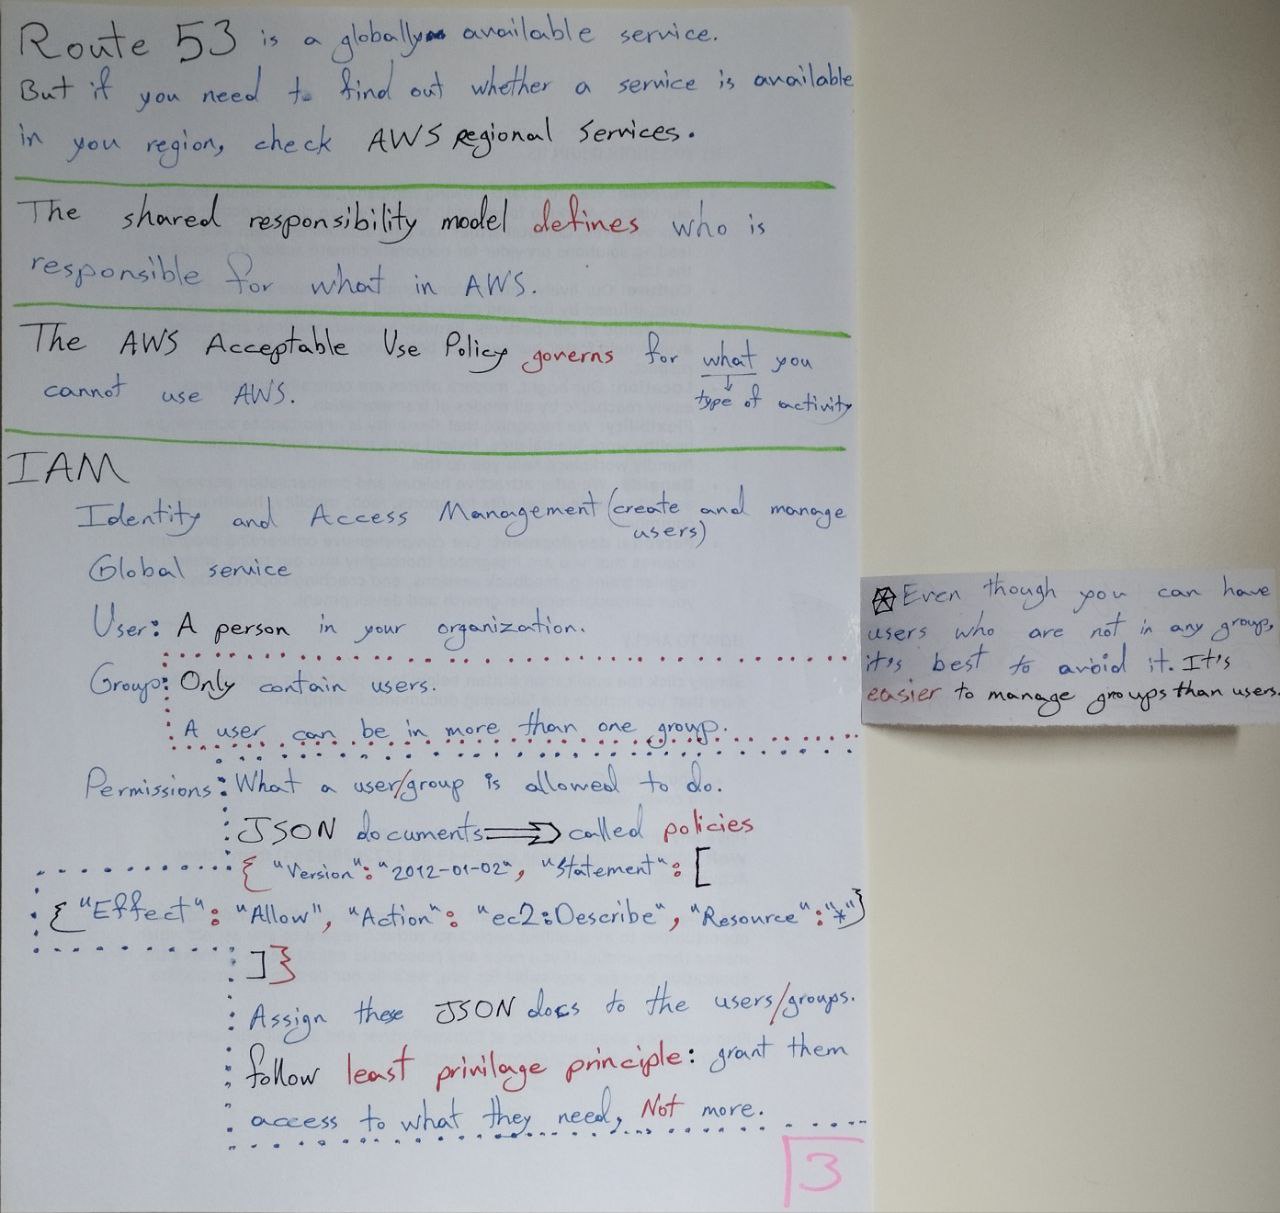 Route 53 is a globally available service.
But if you need to find out whether a service is available
in you region, check AWS Regional Services.
The shared responsibility model defines who is
responsible for what in AWS.
The AWS Acceptable Use Policy governs for what you
cannot use AWS.
type of activity
IAM
Identity and Access Management (create and manage
users)
Global service
User: A person in your organization.
Group: Only contain users.
A user can be in more than one group.
Permissions: What a user/group is allowed to do.
JSON documents ⟹ called policies
{ "Version": "2012-01-02", "Statement": [
{ "Effect": "Allow", "Action": "ec2:Describe", "Resource": "*" }
]}
Assign these JSON docs to the users/groups.
follow least privilage principle: grant them
access to what they need, Not more.
3
Even though you can have
users who are not in any group,
it's best to avoid it. It's
easier to manage groups than users.